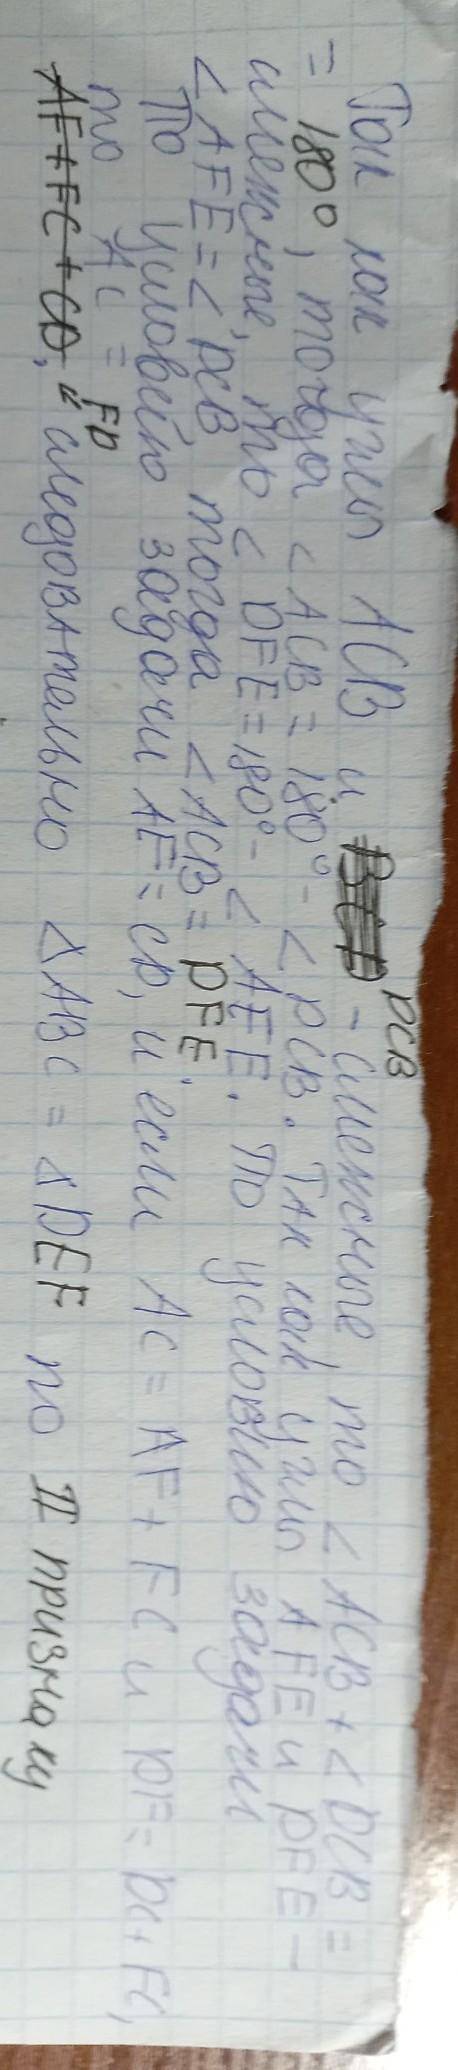 Так как углы ACB и DCB - смежные, то < ACB + < DCB =
= 180°, тогда < ACB = 180° - < DCB. Так как углы AFE и DFE -
смежные, то < DFE = 180° - < AFE. По условию задачи
< AFE = < DCB, тогда < ACB = DFE.
По условию задачи AF = CD, и если AC = AF + FC и DF = DC + FC,
то AC = FD
AF + FC + CD, и следовательно ΔABC = ΔDEF по II признаку